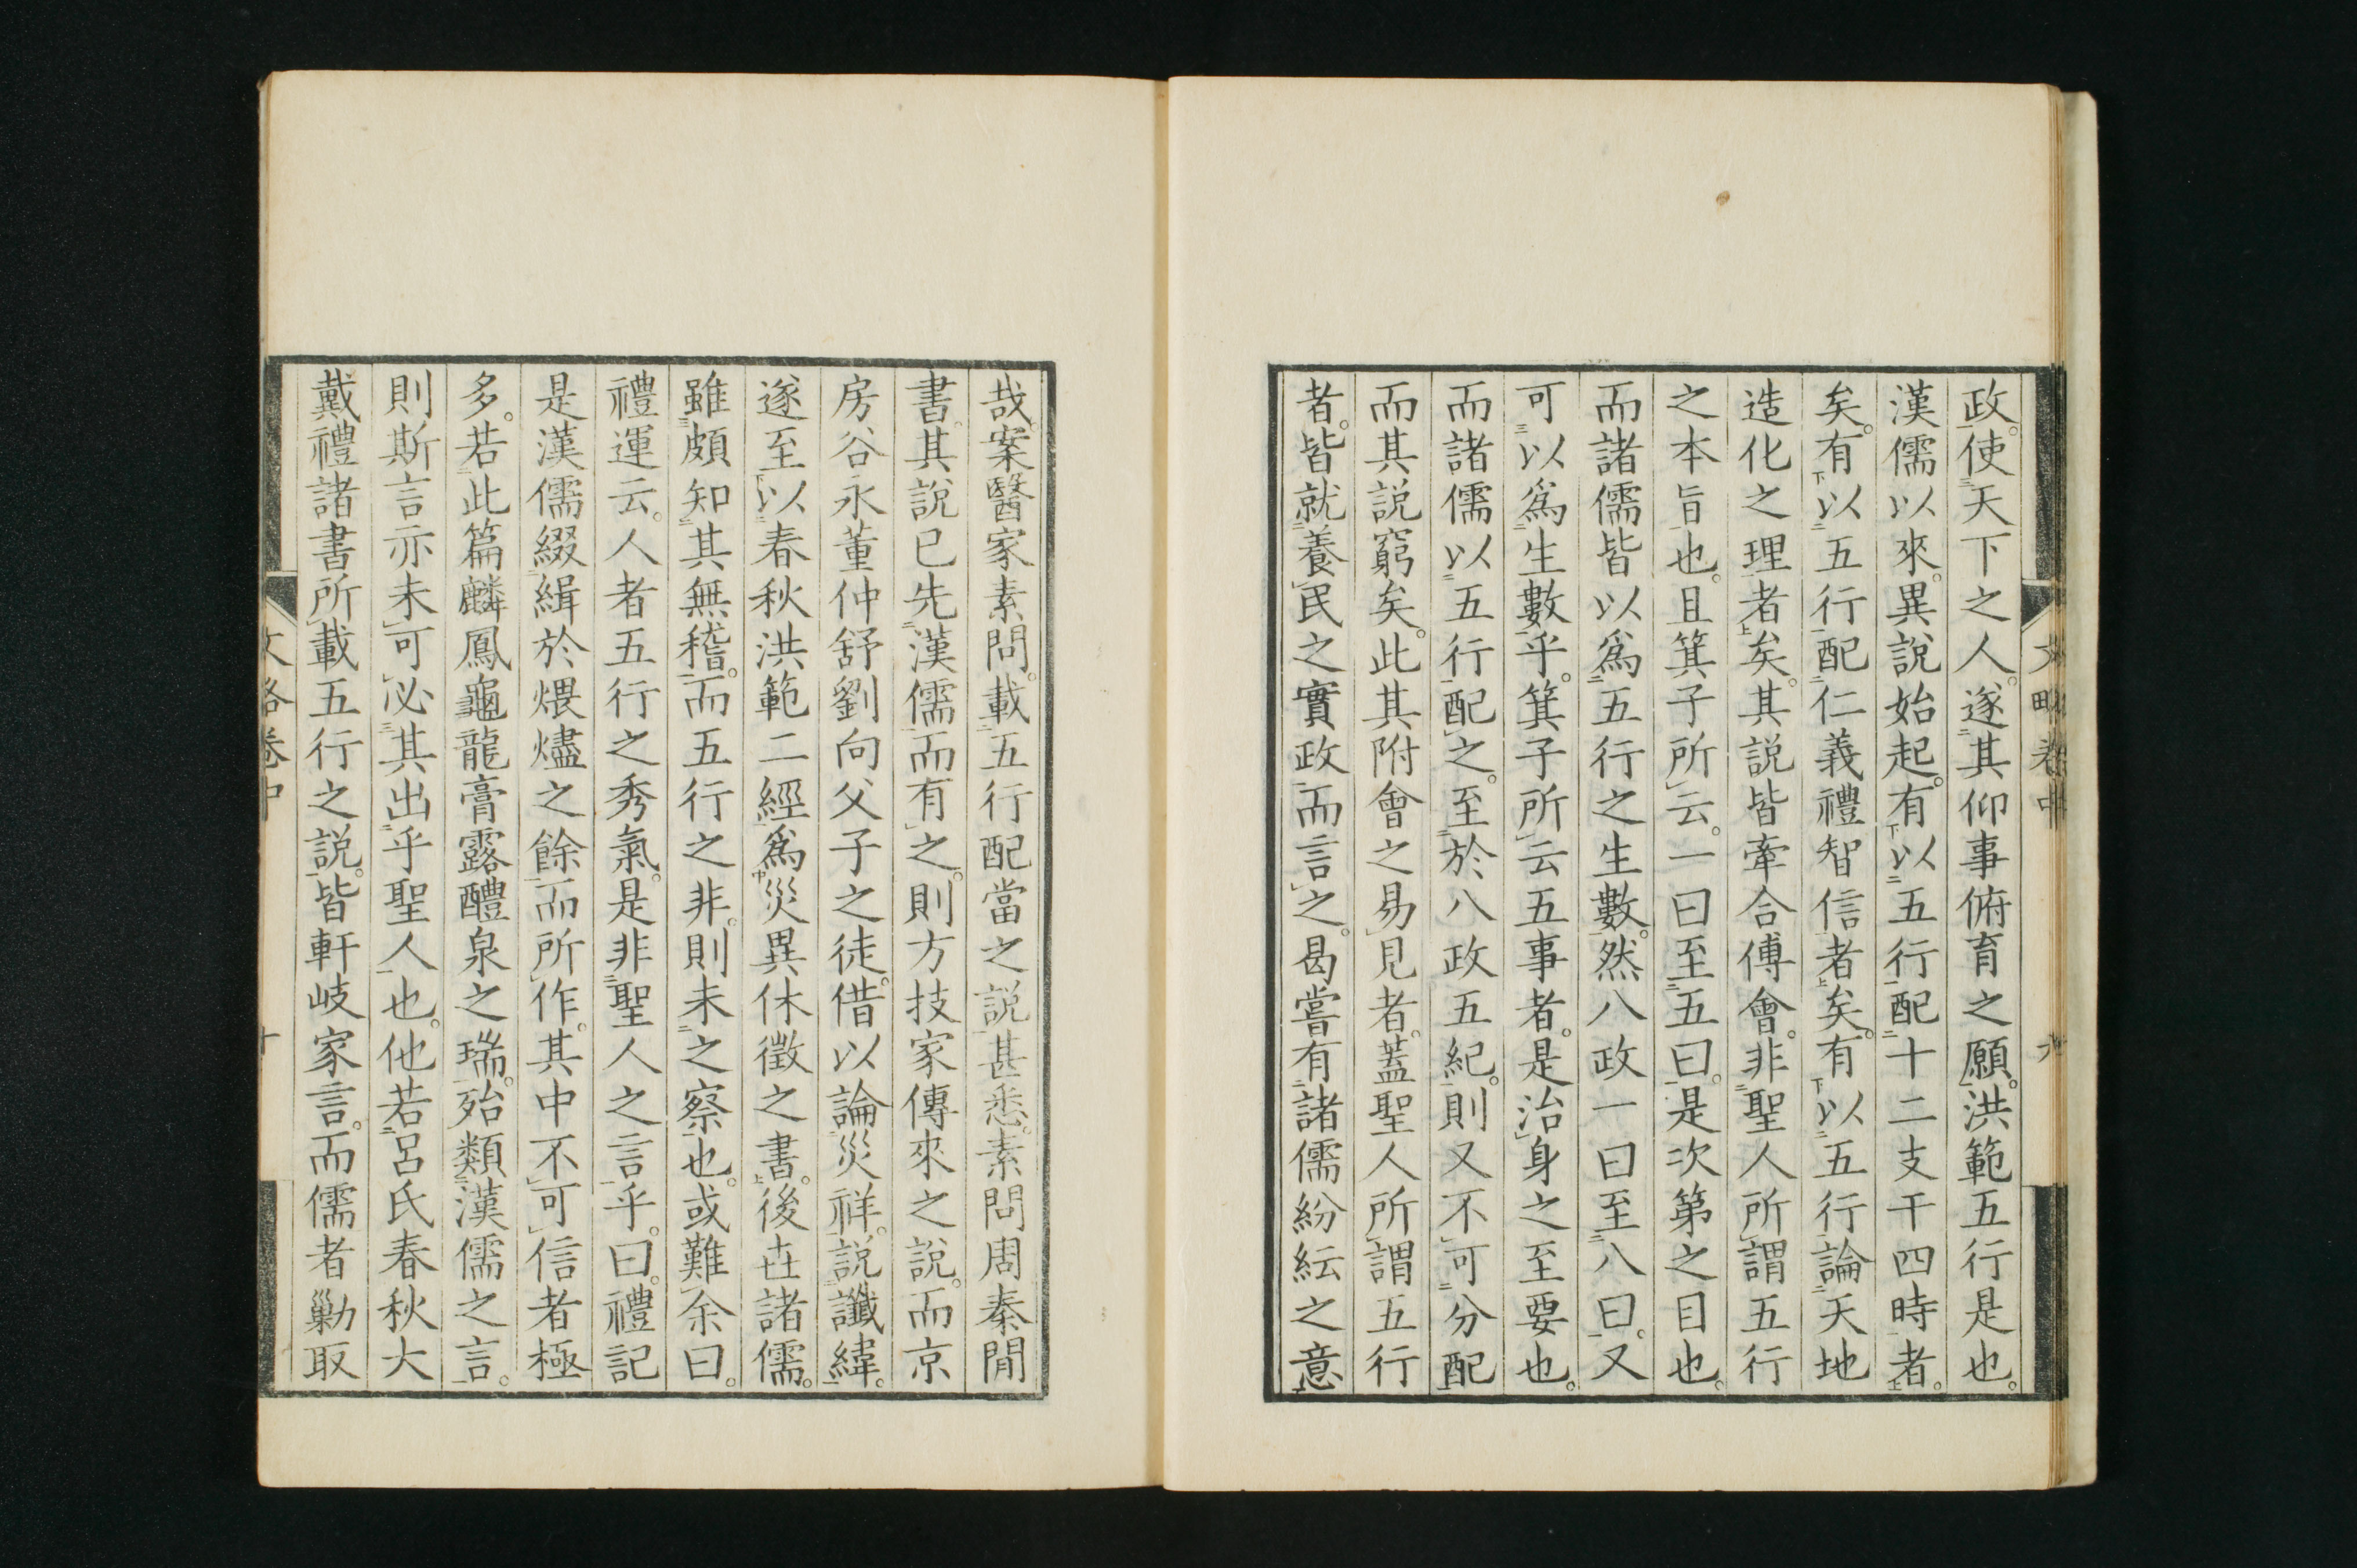 政。使天下之人。遂其仰事俯育之願。洪範五行是也。
漢儒以來。異說始起。有以五行配十二支干四時者。
矣。有以五行配仁義禮智信者矣。有以五行論天地
造化之理者矣。其說皆牽合傅會。非聖人所謂五行
之本旨也。且箕子所云。一曰至五曰。是次第之目也。
而諸儒皆以爲五行之生數。然八政一曰至八曰。又
可以爲生數乎。箕子所云五事者。是治身之至要也。
而諸儒以五行配之。至於八政五紀。則又不可分配
而其說窮矣。此其附會之易見者。蓋聖人所謂五行
者。皆就養民之實政而言之。曷嘗有諸儒紛紜之意
文略卷中
九
哉。案醫家素問。載五行配當之說甚悉。素問周秦間
書。其說已先漢儒而有之。則方技家傳來之說。而京
房谷永董仲舒劉向父子之徒。借以論災祥。說讖緯。
遂至以春秋洪範二經爲災異休徵之書。後世諸儒。
雖頗知其無稽。而五行之非。則未之察也。或難余曰。
禮運云。人者五行之秀氣。是非聖人之言乎。曰。禮記
是漢儒綴緝於煨燼之餘而所作。其中不可信者極
多。若此篇麟鳳龜龍膏露醴泉之瑞。殆類漢儒之言。
則斯言亦未可必其出乎聖人也。他若呂氏春秋大
戴禮諸書所載五行之說。皆軒岐家言。而儒者勦取
文略卷中
十